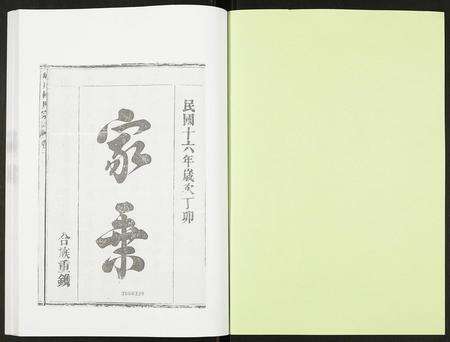 民國十六年歲次丁卯
家乘
合族重鐫